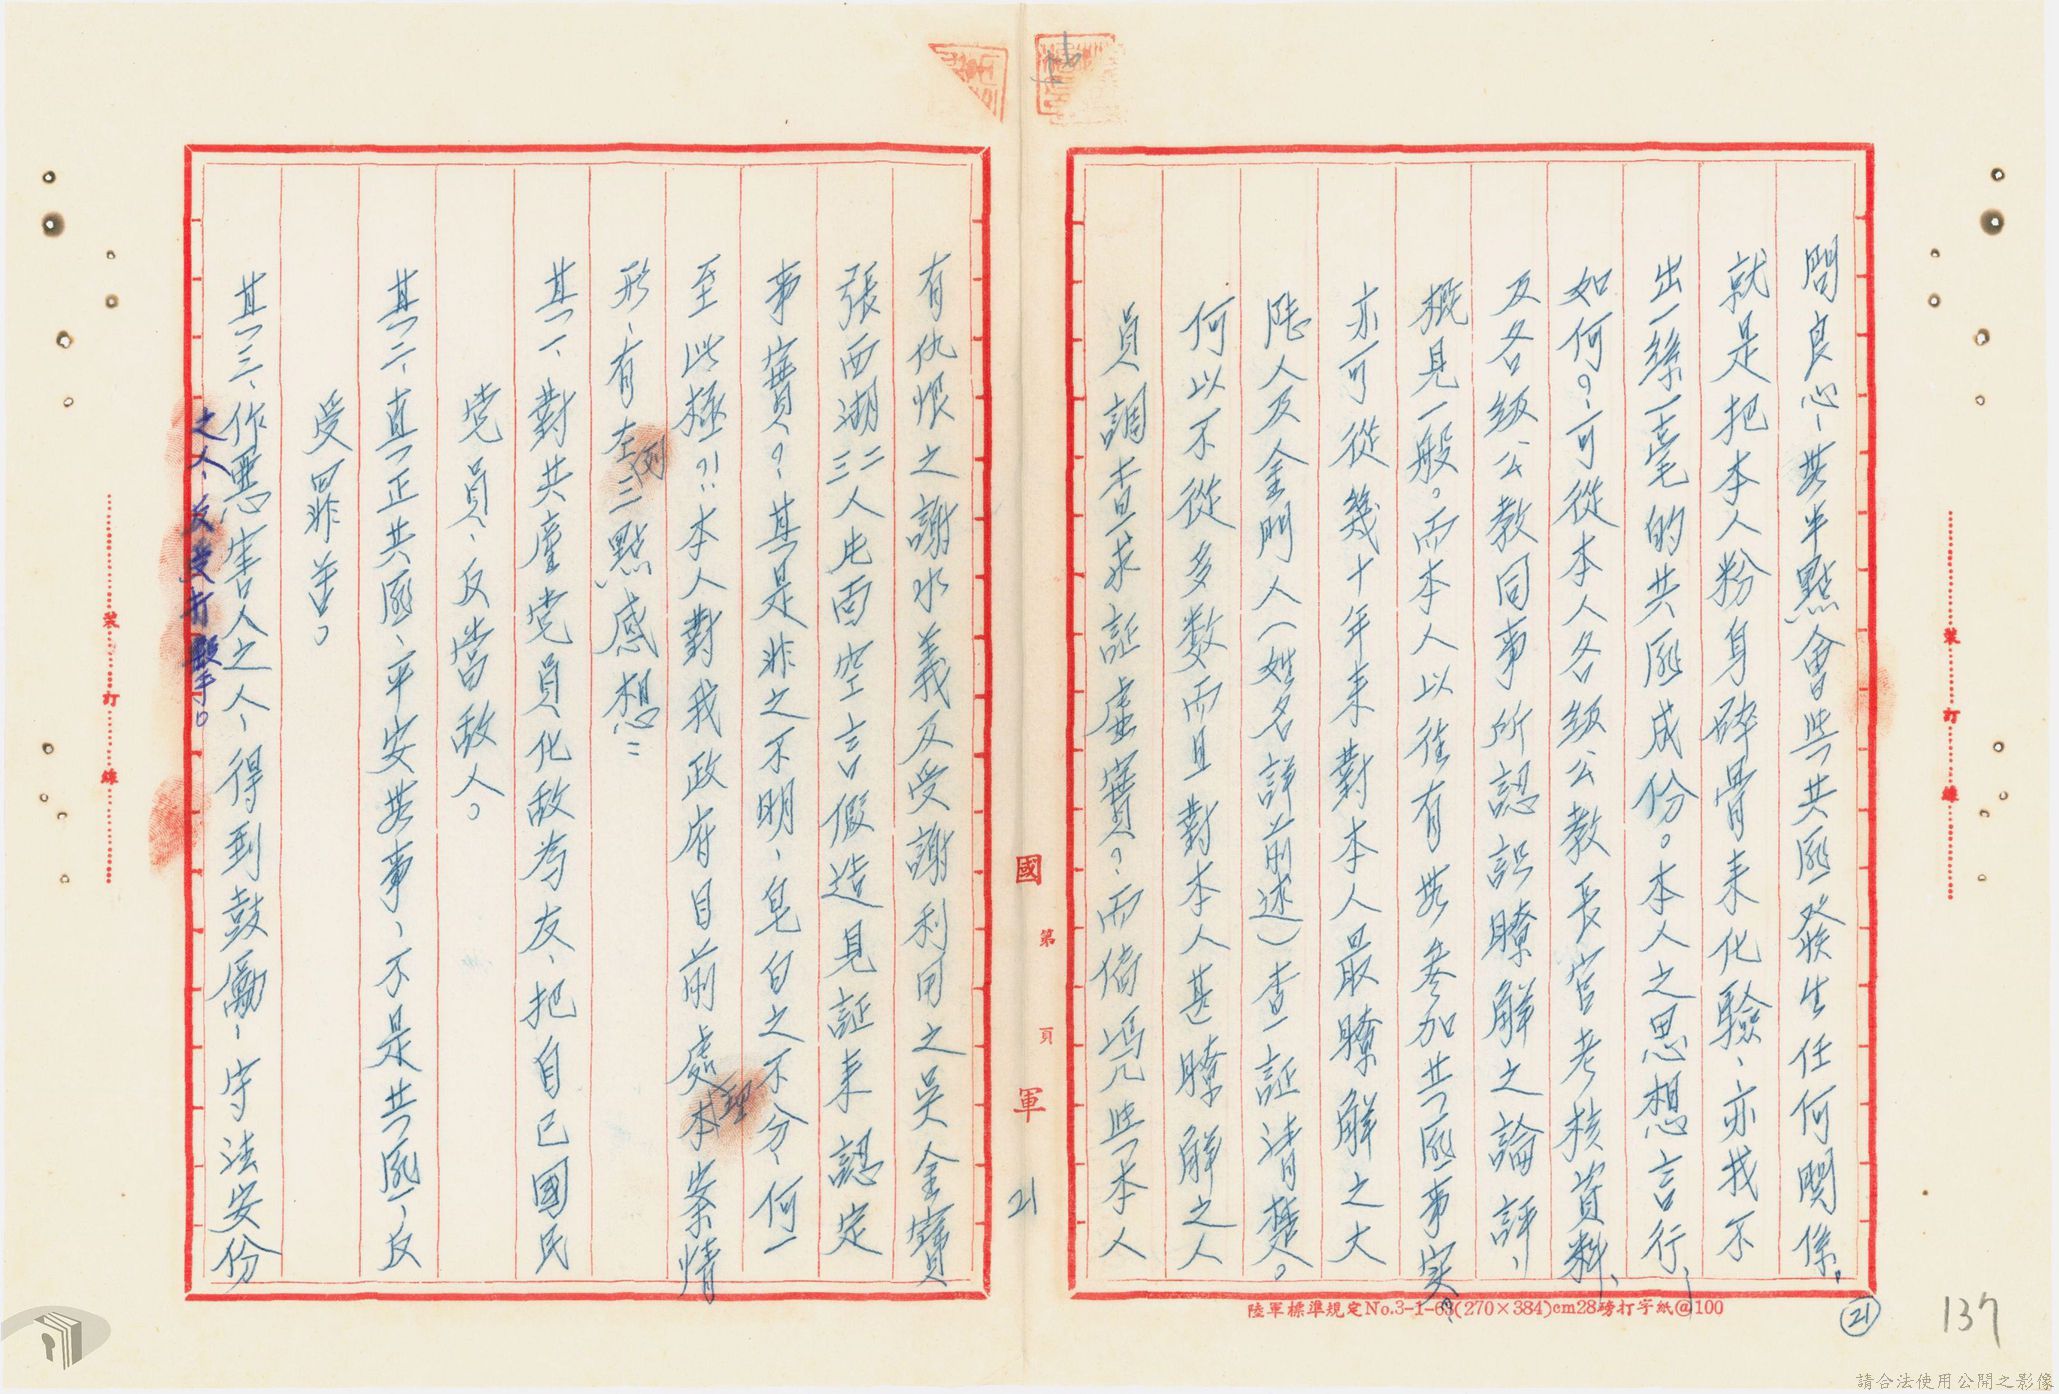 問良心、無半點會與共匪發生任何関係。
就是把本人粉身碎骨来化驗、亦找不
出一絲一毫的共匪成份。本人之思想言行、
如何？可從本人各級公教長官考核資料、
及各級公教同事所認識瞭解之論評、
概見一般。而本人以往有無参加共匪事实？
亦可從幾十年来對本人最瞭解之大
陸人及金門人（姓名詳前述）查証清楚。
何以不從多数而且對本人甚瞭解之人
員調查求証虛實？而偏馮與本人
有仇恨之謝水義及受謝利用之吳金寶
張西湖二三人片面空言假造見証来認定
事實？其是非之不明、皂白之不分、何一
至此極？！本人對我政府目前處理本案情
形、有左列三點感想：
其一、對共產党員化敌為友、把自己國民
党員、反當敌人。
其二、真正共匪、平安無事、不是共匪、反
受罪苦。
其三、作惡害人之人、得到鼓勵、守法安份
之人、反受打擊。
國 第 頁 軍 21
裝 訂 線
裝 訂 線
陸軍標準規定No.3-1-63(270×384)cm28磅打字紙@100
21
137
請合法使用公開之影像